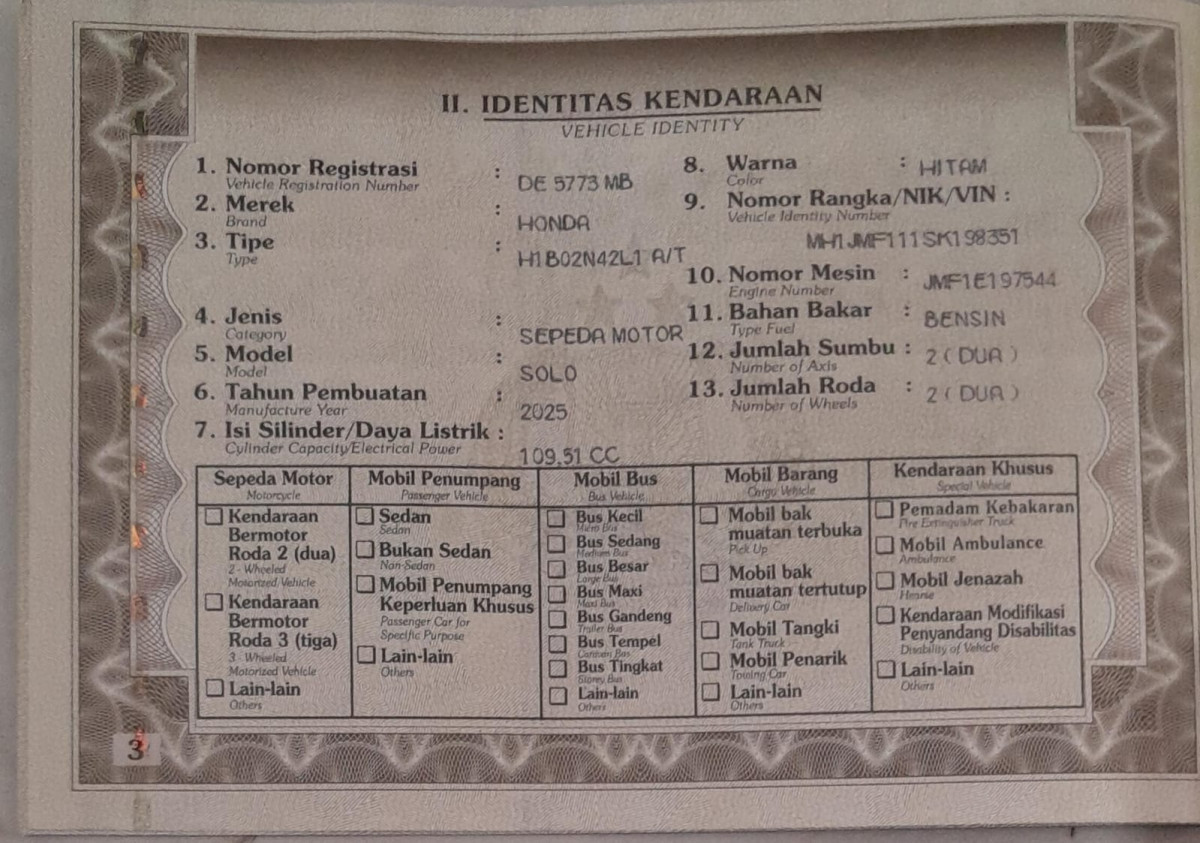 II. IDENTITAS KENDARAAN
VEHICLE IDENTITY
1. Nomor Registrasi : DE 5773 MB
Vehicle Registration Number
2. Merek : HONDA
Brand
3. Tipe : H1B02N42L1 A/T
Type
4. Jenis : SEPEDA MOTOR
Category
5. Model : SOLO
Model
6. Tahun Pembuatan : 2025
Manufacture Year
7. Isi Silinder/Daya Listrik : 109,51 CC
Cylinder Capacity/Electrical Power
8. Warna : HITAM
Color
9. Nomor Rangka/NIK/VIN :
Vehicle Identity Number
MH1JMF111SK198351
10. Nomor Mesin : JMF1E197544
Engine Number
11. Bahan Bakar : BENSIN
Type Fuel
12. Jumlah Sumbu : 2 ( DUA )
Number of Axis
13. Jumlah Roda : 2 ( DUA )
Number of Wheels
Sepeda Motor
Motorcycle
Kendaraan
Bermotor
Roda 2 (dua)
2 - Wheeled
Motorized Vehicle
Kendaraan
Bermotor
Roda 3 (tiga)
3 - Wheeled
Motorized Vehicle
Lain-lain
Others
Mobil Penumpang
Passenger Vehicle
Sedan
Sedan
Bukan Sedan
Non-Sedan
Mobil Penumpang
Keperluan Khusus
Passenger Car for
Specific Purpose
Lain-lain
Others
Mobil Bus
Bus Vehicle
Bus Kecil
Micro Bus
Bus Sedang
Medium Bus
Bus Besar
Large Bus
Bus Maxi
Maxi Bus
Bus Gandeng
Trailer Bus
Bus Tempel
Bus Tingkat
Storey Bus
Lain-lain
Others
Mobil Barang
Cargo Vehicle
Mobil bak
muatan terbuka
Pick Up
Mobil bak
muatan tertutup
Delivery Car
Mobil Tangki
Tank Truck
Mobil Penarik
Towing Car
Lain-lain
Others
Kendaraan Khusus
Special Vehicle
Pemadam Kebakaran
Fire Extinguisher Truck
Mobil Ambulance
Ambulance
Mobil Jenazah
Hearse
Kendaraan Modifikasi
Penyandang Disabilitas
Disability of Vehicle
Lain-lain
Others
3